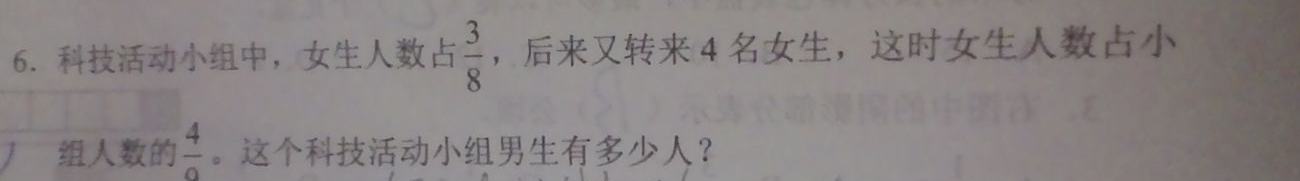 6. 科技活动小组中，女生人数占3/8，后来又转来 4 名女生，这时女生人数占小
组人数的4/9。这个科技活动小组男生有多少人？